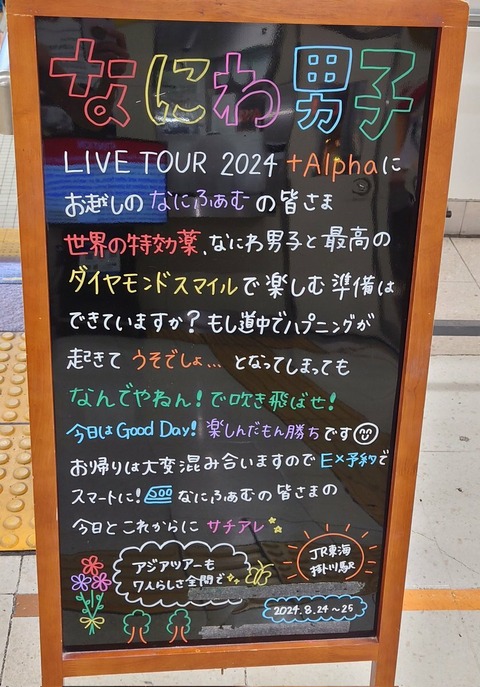 なにわ男子
LIVE TOUR 2024 +Alphaに
お越しの なにふぁむ の皆さま
世界の特効薬、なにわ男子と最高の
ダイヤモンドスマイルで楽しむ準備は
できていますか？もし道中でハプニングが
起きて うそでしょ… となってしまっても
なんでやねん！で吹き飛ばせ！
今日はGood Day! 楽しんだもん勝ちです
お帰りは大変混み合いますのでEX予約で
スマートに！ なにふぁむの皆さまの
今日とこれからに サチアレ
アジアツアーも
7人らしさ全開で
JR東海
掛川駅
2024.8.24～25